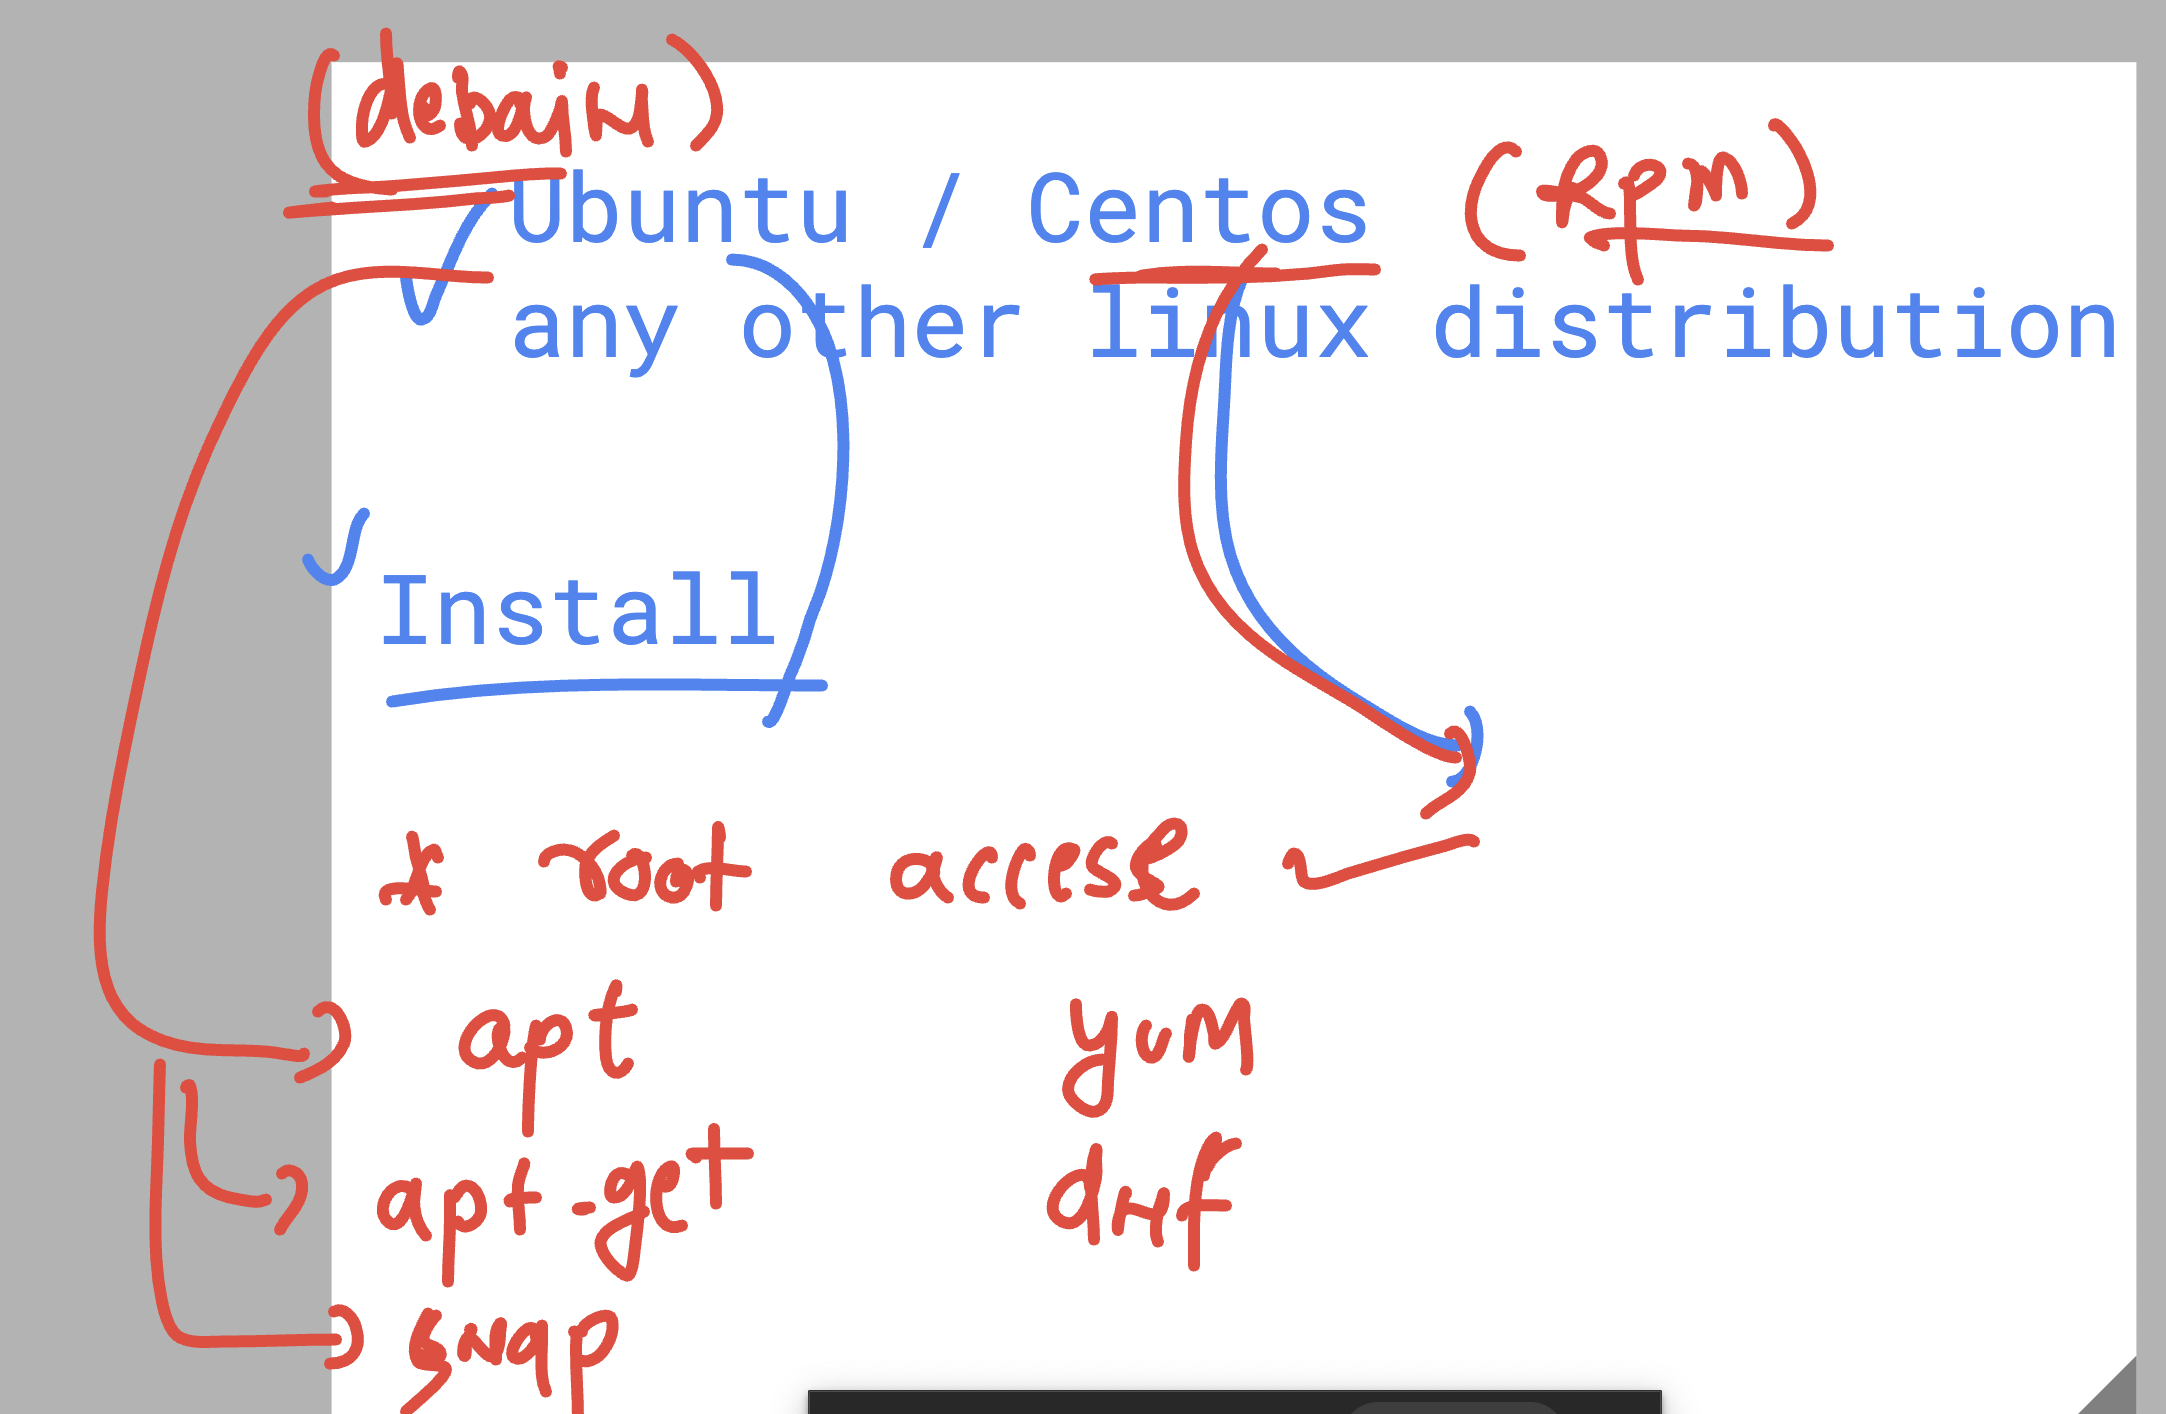 (debain)
Ubuntu / Centos (Rpm)
any other linux distribution
Install
* root access
apt yum
apt-get dnf
snap